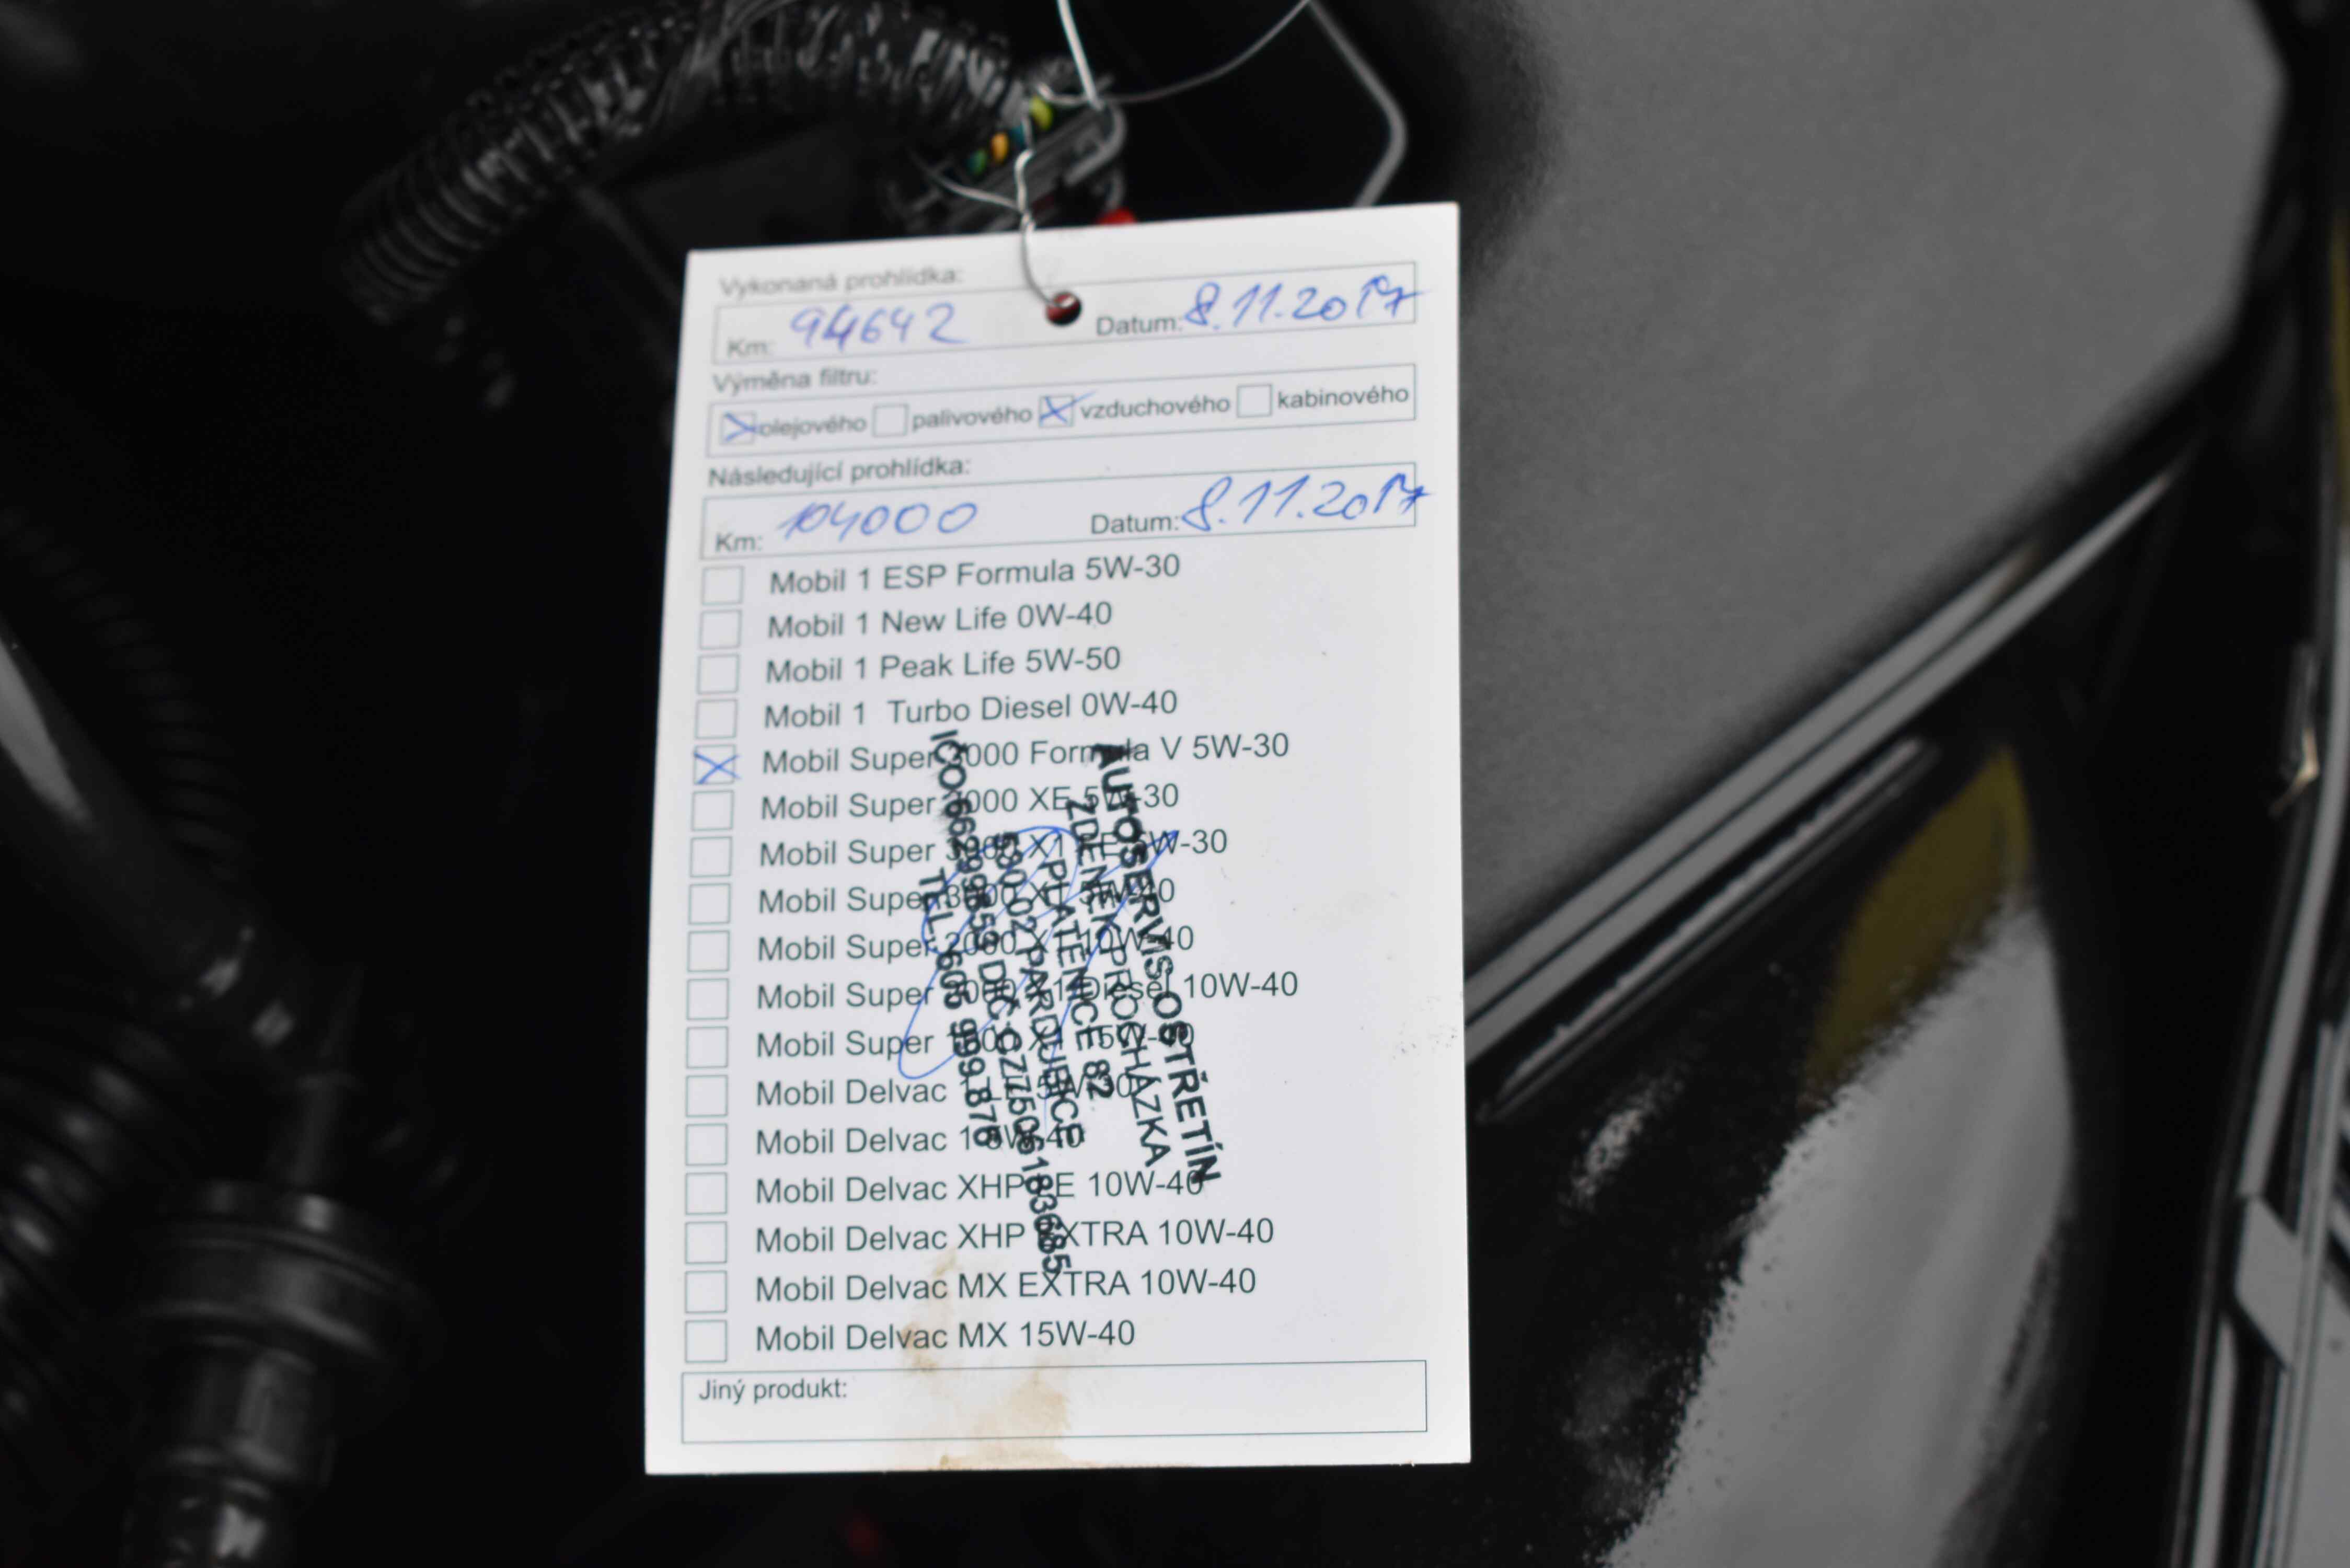 Vykonaná prohlídka:
Km: 94642 Datum: 8.11.2017
Výměna filtru:
olejového palivového vzduchového kabinového
Následující prohlídka:
Km: 104000 Datum: 8.11.2017
Mobil 1 ESP Formula 5W-30
Mobil 1 New Life 0W-40
Mobil 1 Peak Life 5W-50
Mobil 1 Turbo Diesel 0W-40
Mobil Super 3000 Formula V 5W-30
Mobil Super 3000 XE 5W-30
Mobil Super 3000 X1 FE 5W-30
Mobil Super 3000 X1 5W-40
Mobil Super 2000 X1 10W-40
Mobil Super 2000 X1 Diesel 10W-40
Mobil Super 1000 X1 15W-40
Mobil Delvac 1 LE 5W-30
Mobil Delvac 1 5W-40
Mobil Delvac XHP LE 10W-40
Mobil Delvac XHP EXTRA 10W-40
Mobil Delvac MX EXTRA 10W-40
Mobil Delvac MX 15W-40
Jiný produkt:
AUTOSERVIS OSTŘETÍN
ZDENĚK PROCHÁZKA
PLATĚNICE 82
530 02 PARDUBICE
DIČ CZ7506183685
TEL.: 605 999 876